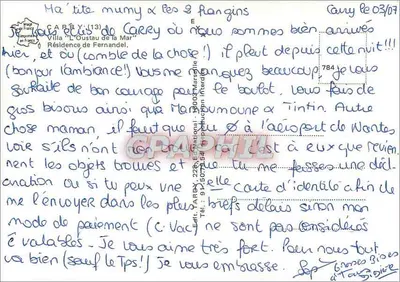 Ma 'tite mumy & les 2 frangins
Carry le 03/07
CARRY (13)
Villa "L'Oustau de la Mar"
Résidence de Fernandel.
Je vous écris de CARRY où nous sommes bien arrivés
hier, et où (comble de la chose!) il pleut depuis cette nuit!!!
(bonjour l'ambiance!) Vous me manquez beaucoup, je vous
784
souhaite de bon courage pour le boulot. Vous fais de
gros bisous ainsi que Mamoumoune & Tintin. Autre
chose maman, il faut que tu Ø à l'aéroport de Nantes
voir s'ils n'ont les c'est à eux que revien-
nent les objets trouvés et que tu me fasses une décl-
aration ou si tu peux une carte d'identité afin de
me l'envoyer dans les plus brefs délais sinon mon
mode de paiement (c. Vac) ne sont pas considérés
c valables. Je vous aime très fort. Pour nous tout
va bien (sauf le Tps!) Je vous embrasse.
Grosses Bises
à Tous
CPAPHIL